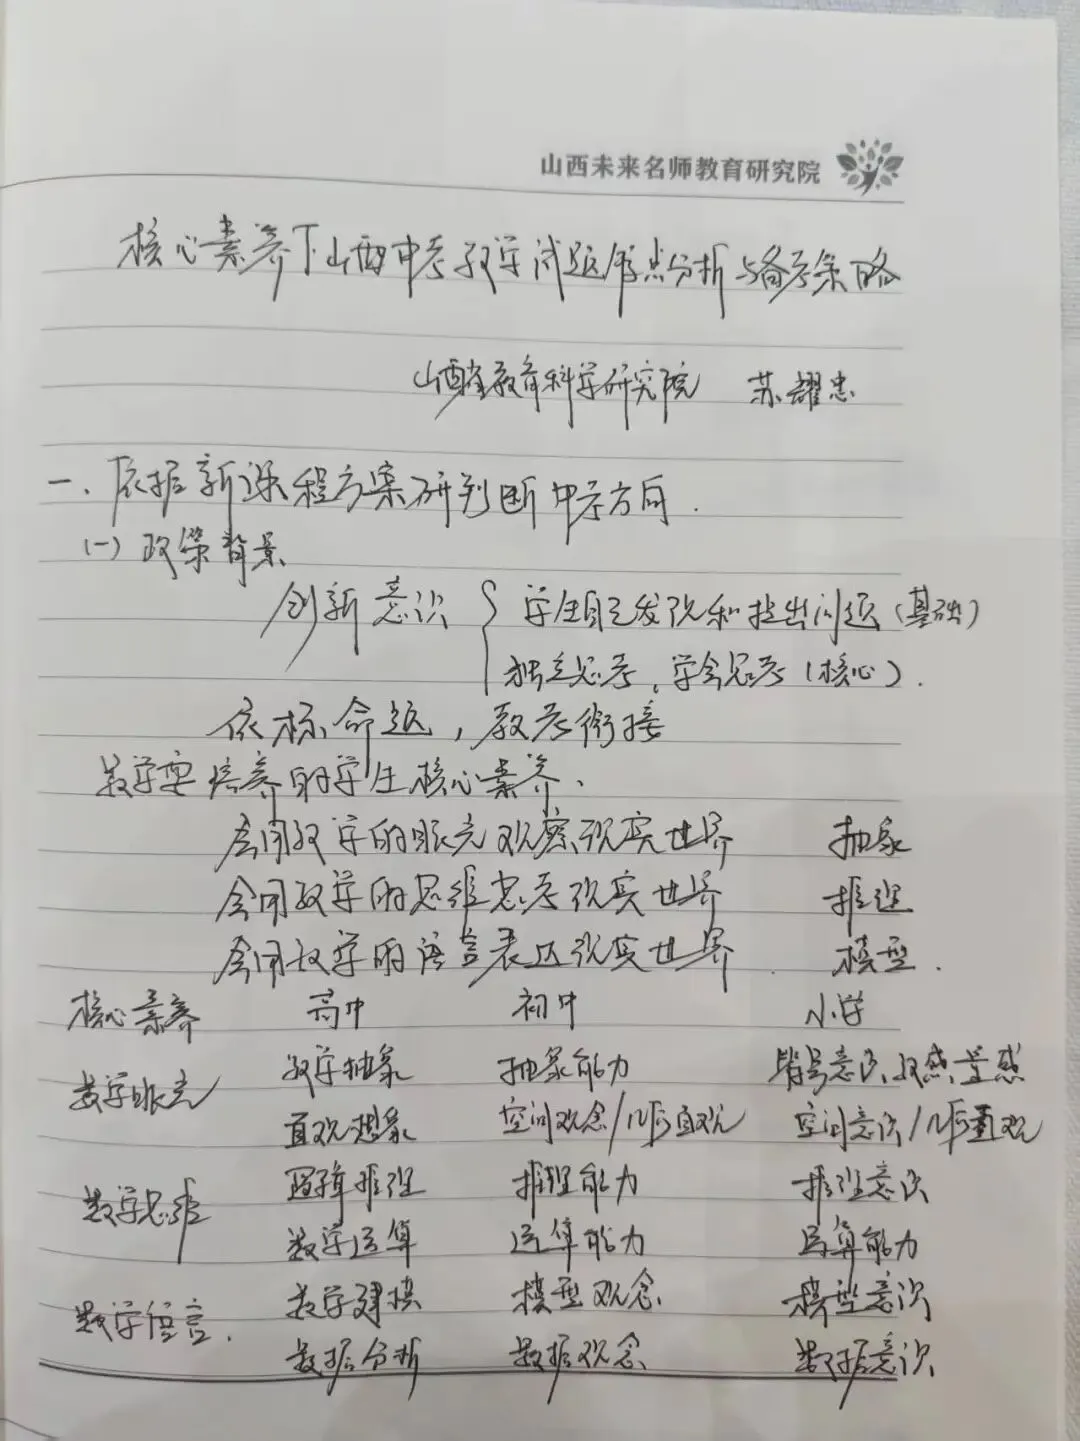 山西未来名师教育研究院
核心素养下山西中考数学试题特点分析与备考策略
山西省教育科学研究院 苏耀忠
一、依据新课程方案研判断中考方向.
(一) 政策背景
创新意识 { 学生自己发现和提出问题(基础)
独立思考、学会思考(核心).
依标命题,教考衔接
数学要培养的学生核心素养、
会用数学的眼光观察现实世界 抽象
会用数学的思维思考现实世界 推理
会用数学的语言表达现实世界. 模型.
核心素养 高中 初中 小学
数学眼光 数学抽象 抽象能力 符号意识、数感、量感
直观想象 空间观念/几何直观 空间意识/几何直观
数学思维 逻辑推理 推理能力 推理意识
数学运算 运算能力 运算能力
数学语言. 数学建模 模型观念 模型意识
数据分析 数据观念 数据意识